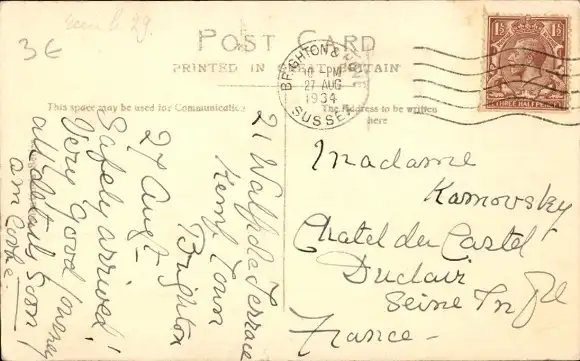 3€
POST CARD
PRINTED IN GREAT BRITAIN
BRIGHTON & HOVE
PM
27 AUG
1934
SUSSEX
1½ 1½
THREE HALFPENCE
This space may be used for Communication
The Address to be written
here
21 Walpole Terrace
Kemp Town
Brighton
27 Augt
Safely arrived!
Very good journey
all details from
Madame
Kamovsky
Chatel du Castel
Duclair
Seine Infre
France-